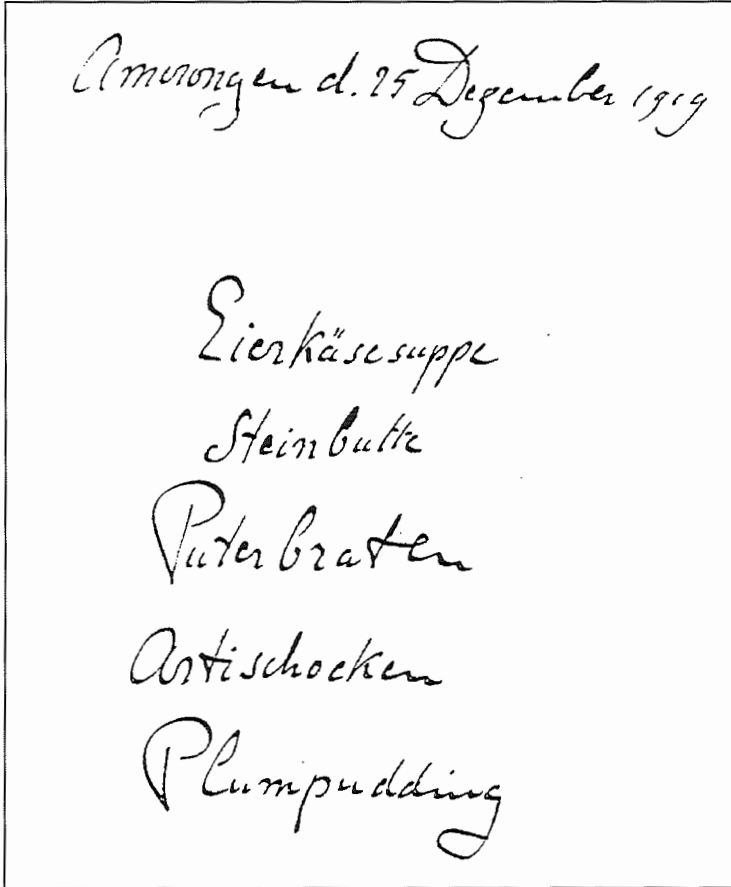 Amerongen d. 25 Dezember 1919
Eierkäsesuppe
Steinbutte
Puterbraten
Artischocken
Plumpudding